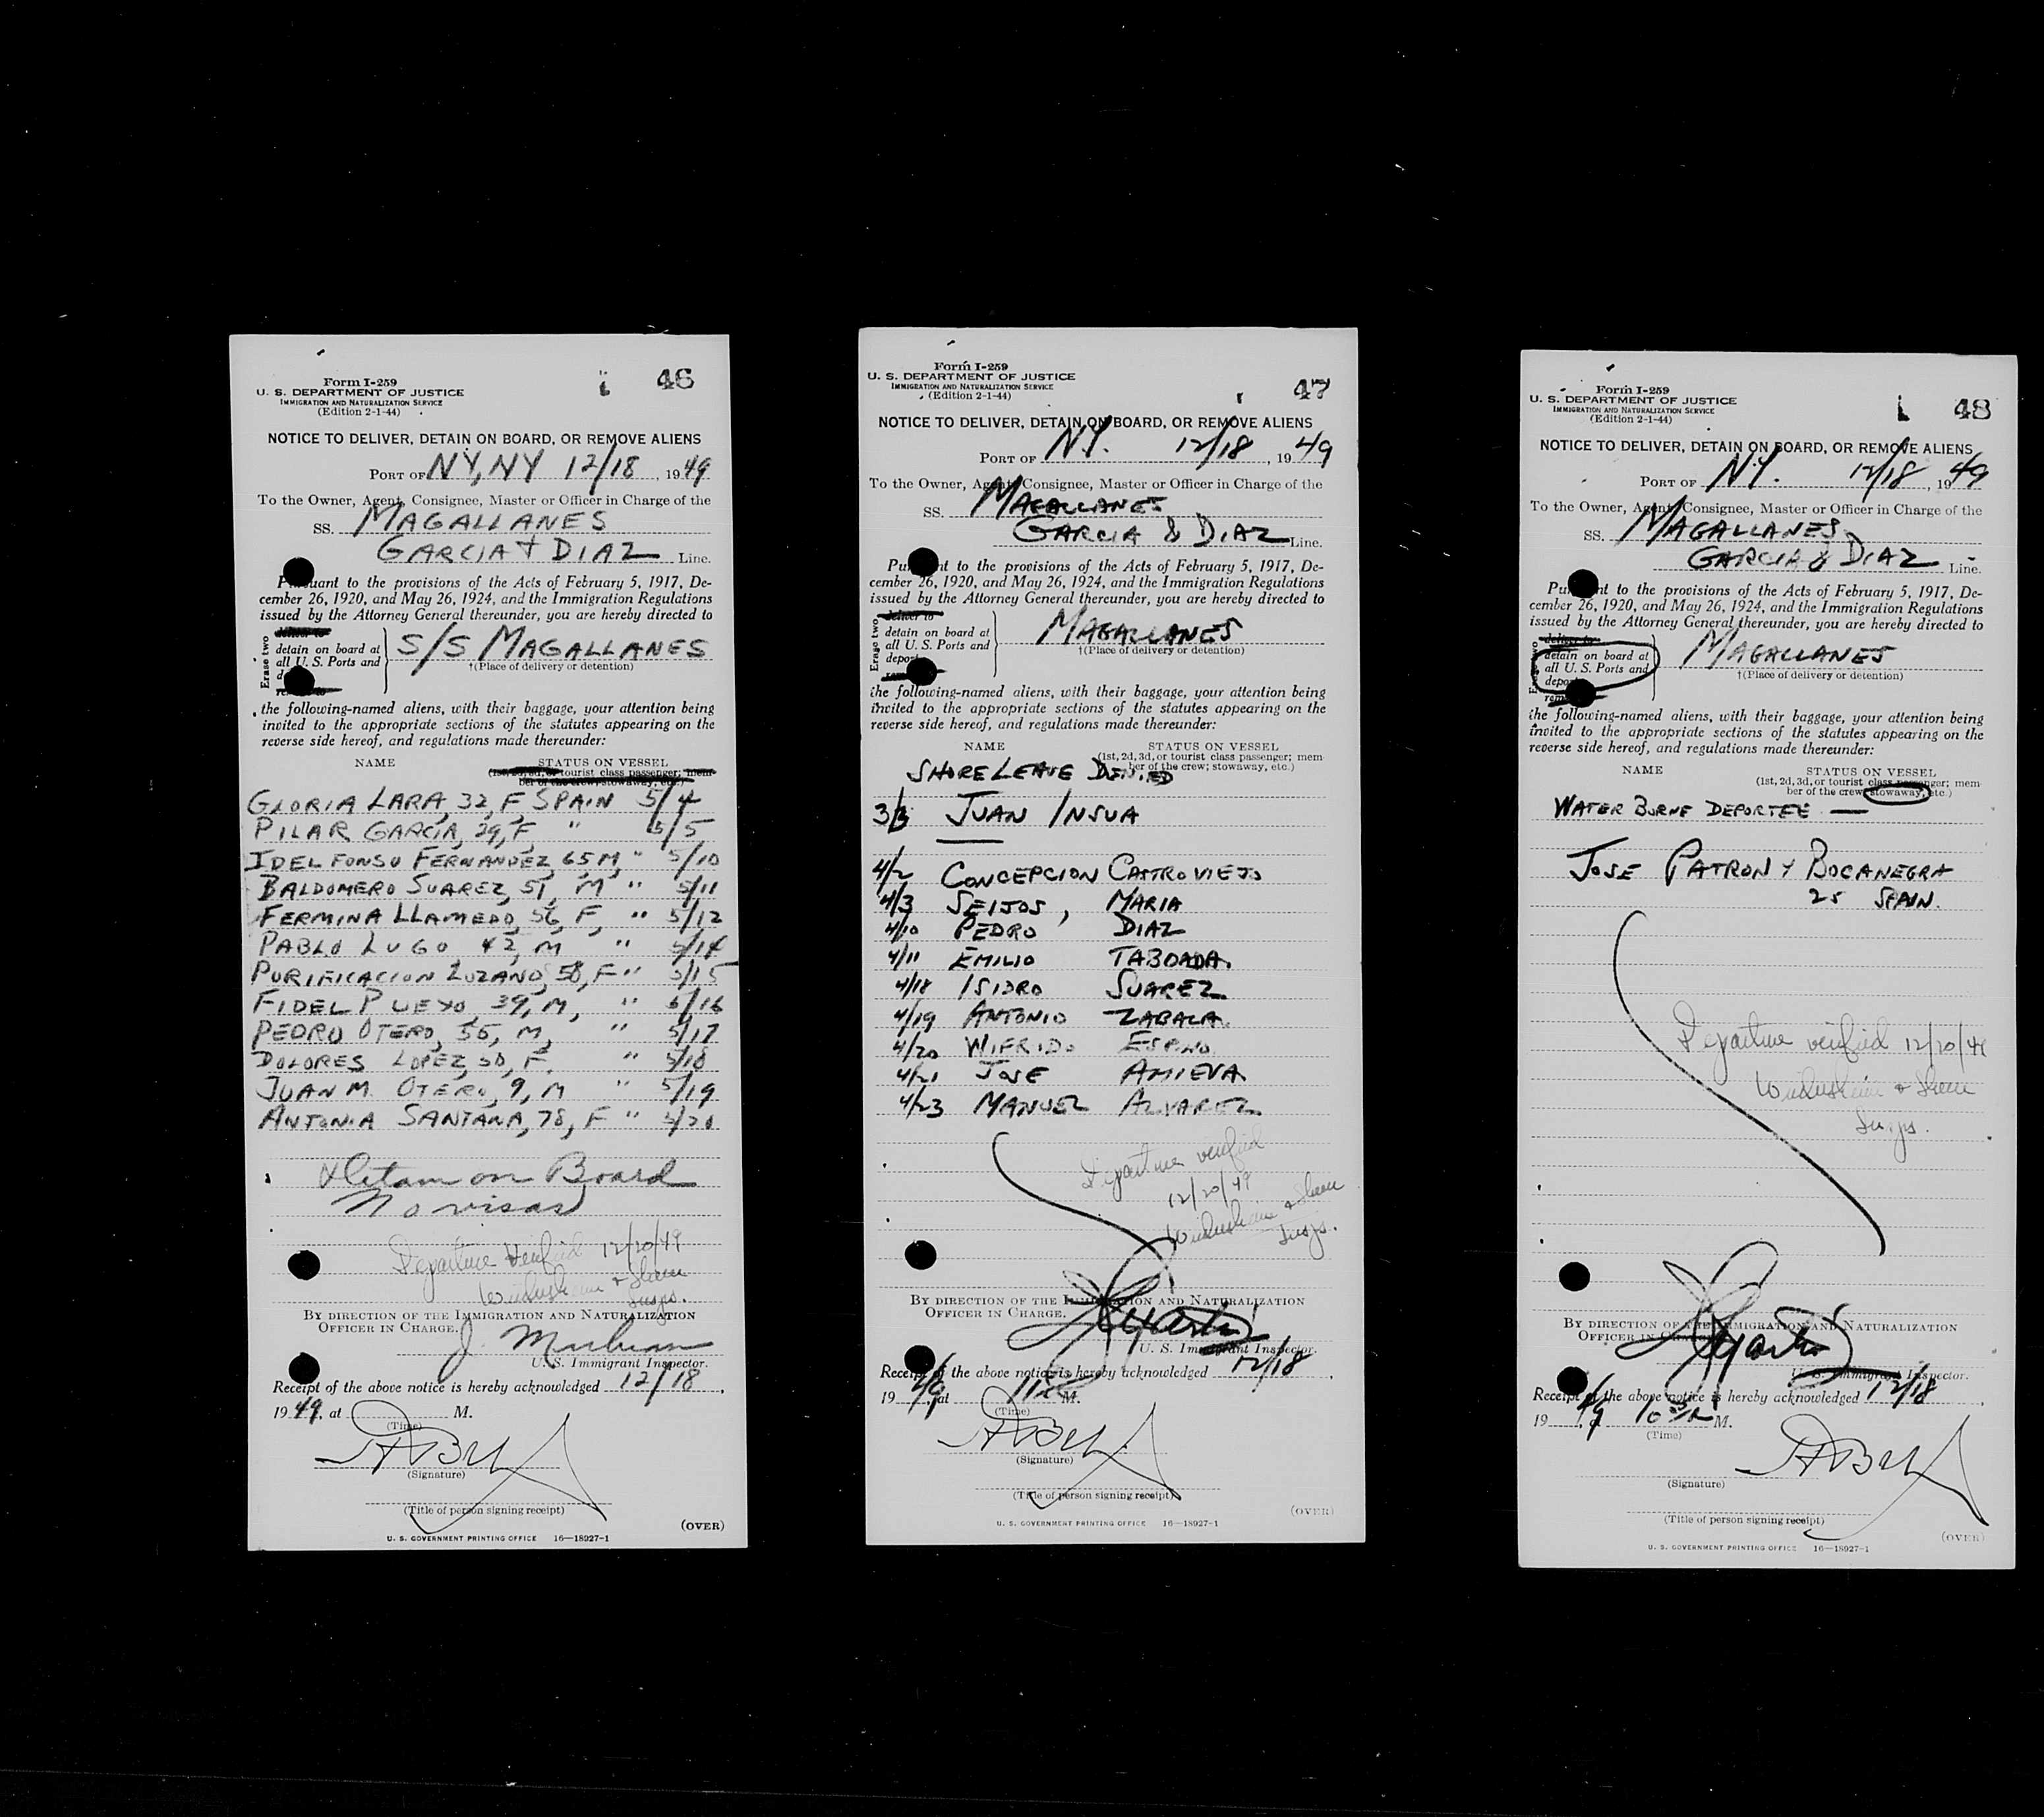 46
Form I-259
U. S. DEPARTMENT OF JUSTICE
IMMIGRATION AND NATURALIZATION SERVICE
(Edition 2-1-44)
NOTICE TO DELIVER, DETAIN ON BOARD, OR REMOVE ALIENS
PORT OF NY, NY 12/18, 1949
To the Owner, Agent, Consignee, Master or Officer in Charge of the
SS. MAGALLANES
GARCIA + DIAZ Line.
Pursuant to the provisions of the Acts of February 5, 1917, De-
cember 26, 1920, and May 26, 1924, and the Immigration Regulations
issued by the Attorney General thereunder, you are hereby directed to
Erase two
detain on board at
all U. S. Ports and
S/S MAGALLANES
†(Place of delivery or detention)
the following-named aliens, with their baggage, your attention being
invited to the appropriate sections of the statutes appearing on the
reverse side hereof, and regulations made thereunder:
NAME STATUS ON VESSEL
(1st, 2d, 3d, or tourist class passenger; mem-
ber of the crew; stowaway, etc.)
GLORIA LARA, 32, F SPAIN 5/4
PILAR GARCIA, 29, F, " 5/5
IDELFONSO FERNANDEZ, 65, M, " 5/10
BALDOMERO SUAREZ, 51, M " 5/11
FERMINA LLAMEDO, 56, F, " 5/12
PABLO LUGO 42, M " 5/14
PURIFICACION LUZANO, 58, F " 5/15
FIDEL PUEYO, 39, M, " 5/16
PEDRO OTERO, 55, M, " 5/17
DOLORES LOPEZ, 50, F. " 5/18
JUAN M. OTERO, 9, M " 5/19
ANTONIA SANTANA, 78, F " 5/20
Detain on Board
No visas
Departure Verified 12/20/49
Insps.
BY DIRECTION OF THE IMMIGRATION AND NATURALIZATION
OFFICER IN CHARGE.
J.
U. S. Immigrant Inspector.
Receipt of the above notice is hereby acknowledged 12/18,
1949, at M.
(Time)
(Signature)
(Title of person signing receipt)
(OVER)
U. S. GOVERNMENT PRINTING OFFICE 16—18927-1
47
Form I-259
U. S. DEPARTMENT OF JUSTICE
IMMIGRATION AND NATURALIZATION SERVICE
(Edition 2-1-44)
NOTICE TO DELIVER, DETAIN ON BOARD, OR REMOVE ALIENS
PORT OF N.Y. 12/18, 1949
To the Owner, Agent, Consignee, Master or Officer in Charge of the
SS. MAGALLANES
GARCIA & DIAZ Line.
Pursuant to the provisions of the Acts of February 5, 1917, De-
cember 26, 1920, and May 26, 1924, and the Immigration Regulations
issued by the Attorney General thereunder, you are hereby directed to
Erase two
deliver to
detain on board at
all U. S. Ports and
deport
MAGALLANES
†(Place of delivery or detention)
the following-named aliens, with their baggage, your attention being
invited to the appropriate sections of the statutes appearing on the
reverse side hereof, and regulations made thereunder:
NAME STATUS ON VESSEL
(1st, 2d, 3d, or tourist class passenger; mem
ber of the crew; stowaway, etc.)
SHORE LEAVE DENIED
3/3 JUAN INSUA
4/2 CONCEPCION CASTROVIEJO
4/3 SEIJOS, MARIA
4/10 PEDRO DIAZ
4/11 EMILIO TABOADA.
4/18 ISIDRO SUAREZ
4/19 ANTONIO ZABALA
4/20 WIFRIDO ESPINO
4/21 JOSE AMIEVA
4/23 MANUEL ALVAREZ
Departure verified
12/20/49
Insps.
BY DIRECTION OF THE IMMIGRATION AND NATURALIZATION
OFFICER IN CHARGE.
U. S. Immigrant Inspector.
Receipt of the above notice is hereby acknowledged 12/18,
1949, at M.
(Time)
(Signature)
(Title of person signing receipt)
(OVER)
U. S. GOVERNMENT PRINTING OFFICE 16—18927-1
48
Form I-259
U. S. DEPARTMENT OF JUSTICE
IMMIGRATION AND NATURALIZATION SERVICE
(Edition 2-1-44)
NOTICE TO DELIVER, DETAIN ON BOARD, OR REMOVE ALIENS
PORT OF N.Y. 12/18, 1949
To the Owner, Agent, Consignee, Master or Officer in Charge of the
SS. MAGALLANES
GARCIA & DIAZ Line.
Pursuant to the provisions of the Acts of February 5, 1917, De-
cember 26, 1920, and May 26, 1924, and the Immigration Regulations
issued by the Attorney General thereunder, you are hereby directed to
deliver to
detain on board at
all U. S. Ports and
deport
MAGALLANES
†(Place of delivery or detention)
the following-named aliens, with their baggage, your attention being
invited to the appropriate sections of the statutes appearing on the
reverse side hereof, and regulations made thereunder:
NAME STATUS ON VESSEL
(1st, 2d, 3d, or tourist class passenger; mem
ber of the crew; stowaway, etc.)
WATER BORNE DEPORTEE —
JOSE PATRON Y BOCANEGRA
25 SPAIN.
Departure verified 12/20/49
Insps.
BY DIRECTION OF THE IMMIGRATION AND NATURALIZATION
OFFICER IN CHARGE
U. S. Immigrant Inspector.
Receipt of the above notice is hereby acknowledged 12/18,
1949, M.
(Time)
(Signature)
(Title of person signing receipt)
(OVER)
U. S. GOVERNMENT PRINTING OFFICE 16—18927-1